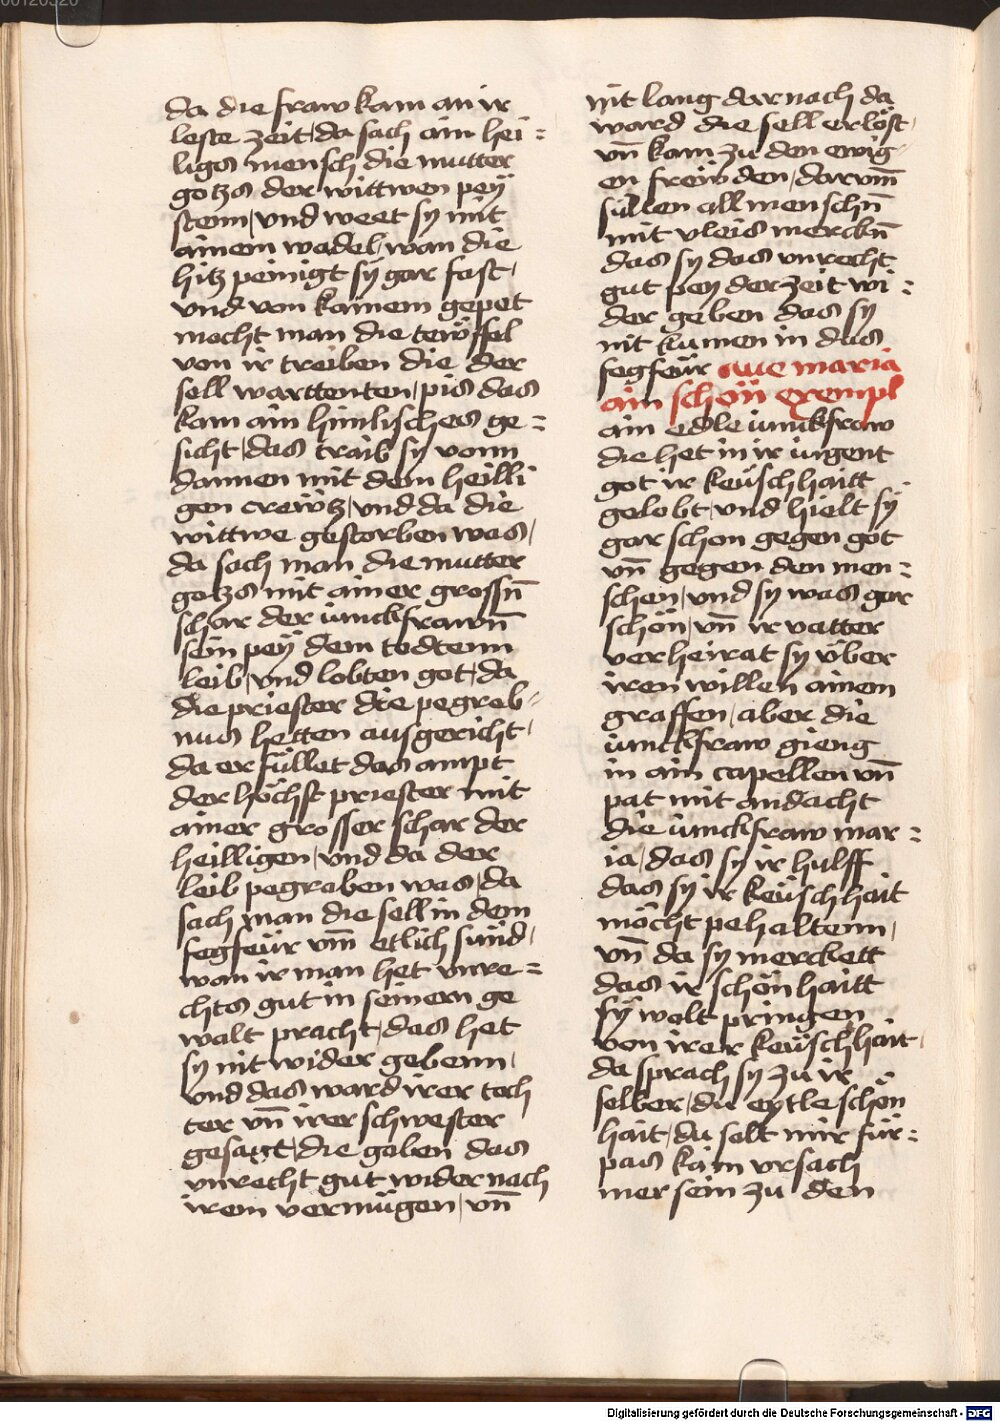 da die fraw kam an ir
leste zeit, da sach ain hei=
ligs mensch die mutter
gotzs der wittwen pey
stenn, vnd weet sy mit
ainem wadel, wan die
hitz peinigt sy gar fast,
vnd von kainem gepet
mocht man die tewffel
von ir treiben die der
sell warttenten, pis das
kam ain himlisches ge=
sicht, das traib sy vonn
dannen mit dem heilli
gen crewtz, vnd da die
wittwe gestorben was,
da sach man die mutter
gotzs mit ainer grossn̄
schar der iunckfrawn̄
sein pey dem todtenn
leib, vnd lobten got, da
die priester die pegreb=
nus hetten ausgericht,
da erfüllet das ampt
der höchst priester mit
ainer grosser schar der
heilligen, vnd da der
leib pegraben was, da
sach man die sell in dem
fegfeür vm̄ etlich sünd,
wan ir man het vnre=
chts gut in seinem ge
walt pracht, das het
sy nit wider gebenn,
vnd das ward irer toch
ter vn̄ irer schwester
gesagt, die geben das
vnrecht gut wider nach
irem vermügen, vn̄
nit lang dar nach da
ward die sell erlöst,
vn̄ kam zu den ewig
en frewden, darvm̄
süllen all menschn̄
mit vleis merckn̄
das sy das vnrecht
gut pey der zeit wi=
der geben das sy
nit kumen in das
fegfeür aue maria
ain schön exempl
ain edle iunckfraw
die het in ir iugent
got ir keüschhaitt
gelobt, vnd hielt sy
gar schon gegen got
vn̄ gegen den men=
schen, vnd sy was gar
schön, vn̄ ir vatter
verheirat sy über
iren willen ainem
graffen, aber die
iunckfraw gieng
in ain capellen vn̄
pat mit andacht
die iunckfraw mar=
ia, das sy ir hulff
das sy ir keüschhait
möcht pehaltenn,
vn̄ da sy merckett
das ir schönhaitt
sy wolt pringen
von irer keüschhait,
da sprach sy zu ir
selber, du eytle schön
hait, du solt mir für=
pas kain vrsach
mer sein zu den
Digitalisierung gefördert durch die Deutsche Forschungsgemeinschaft - DFG